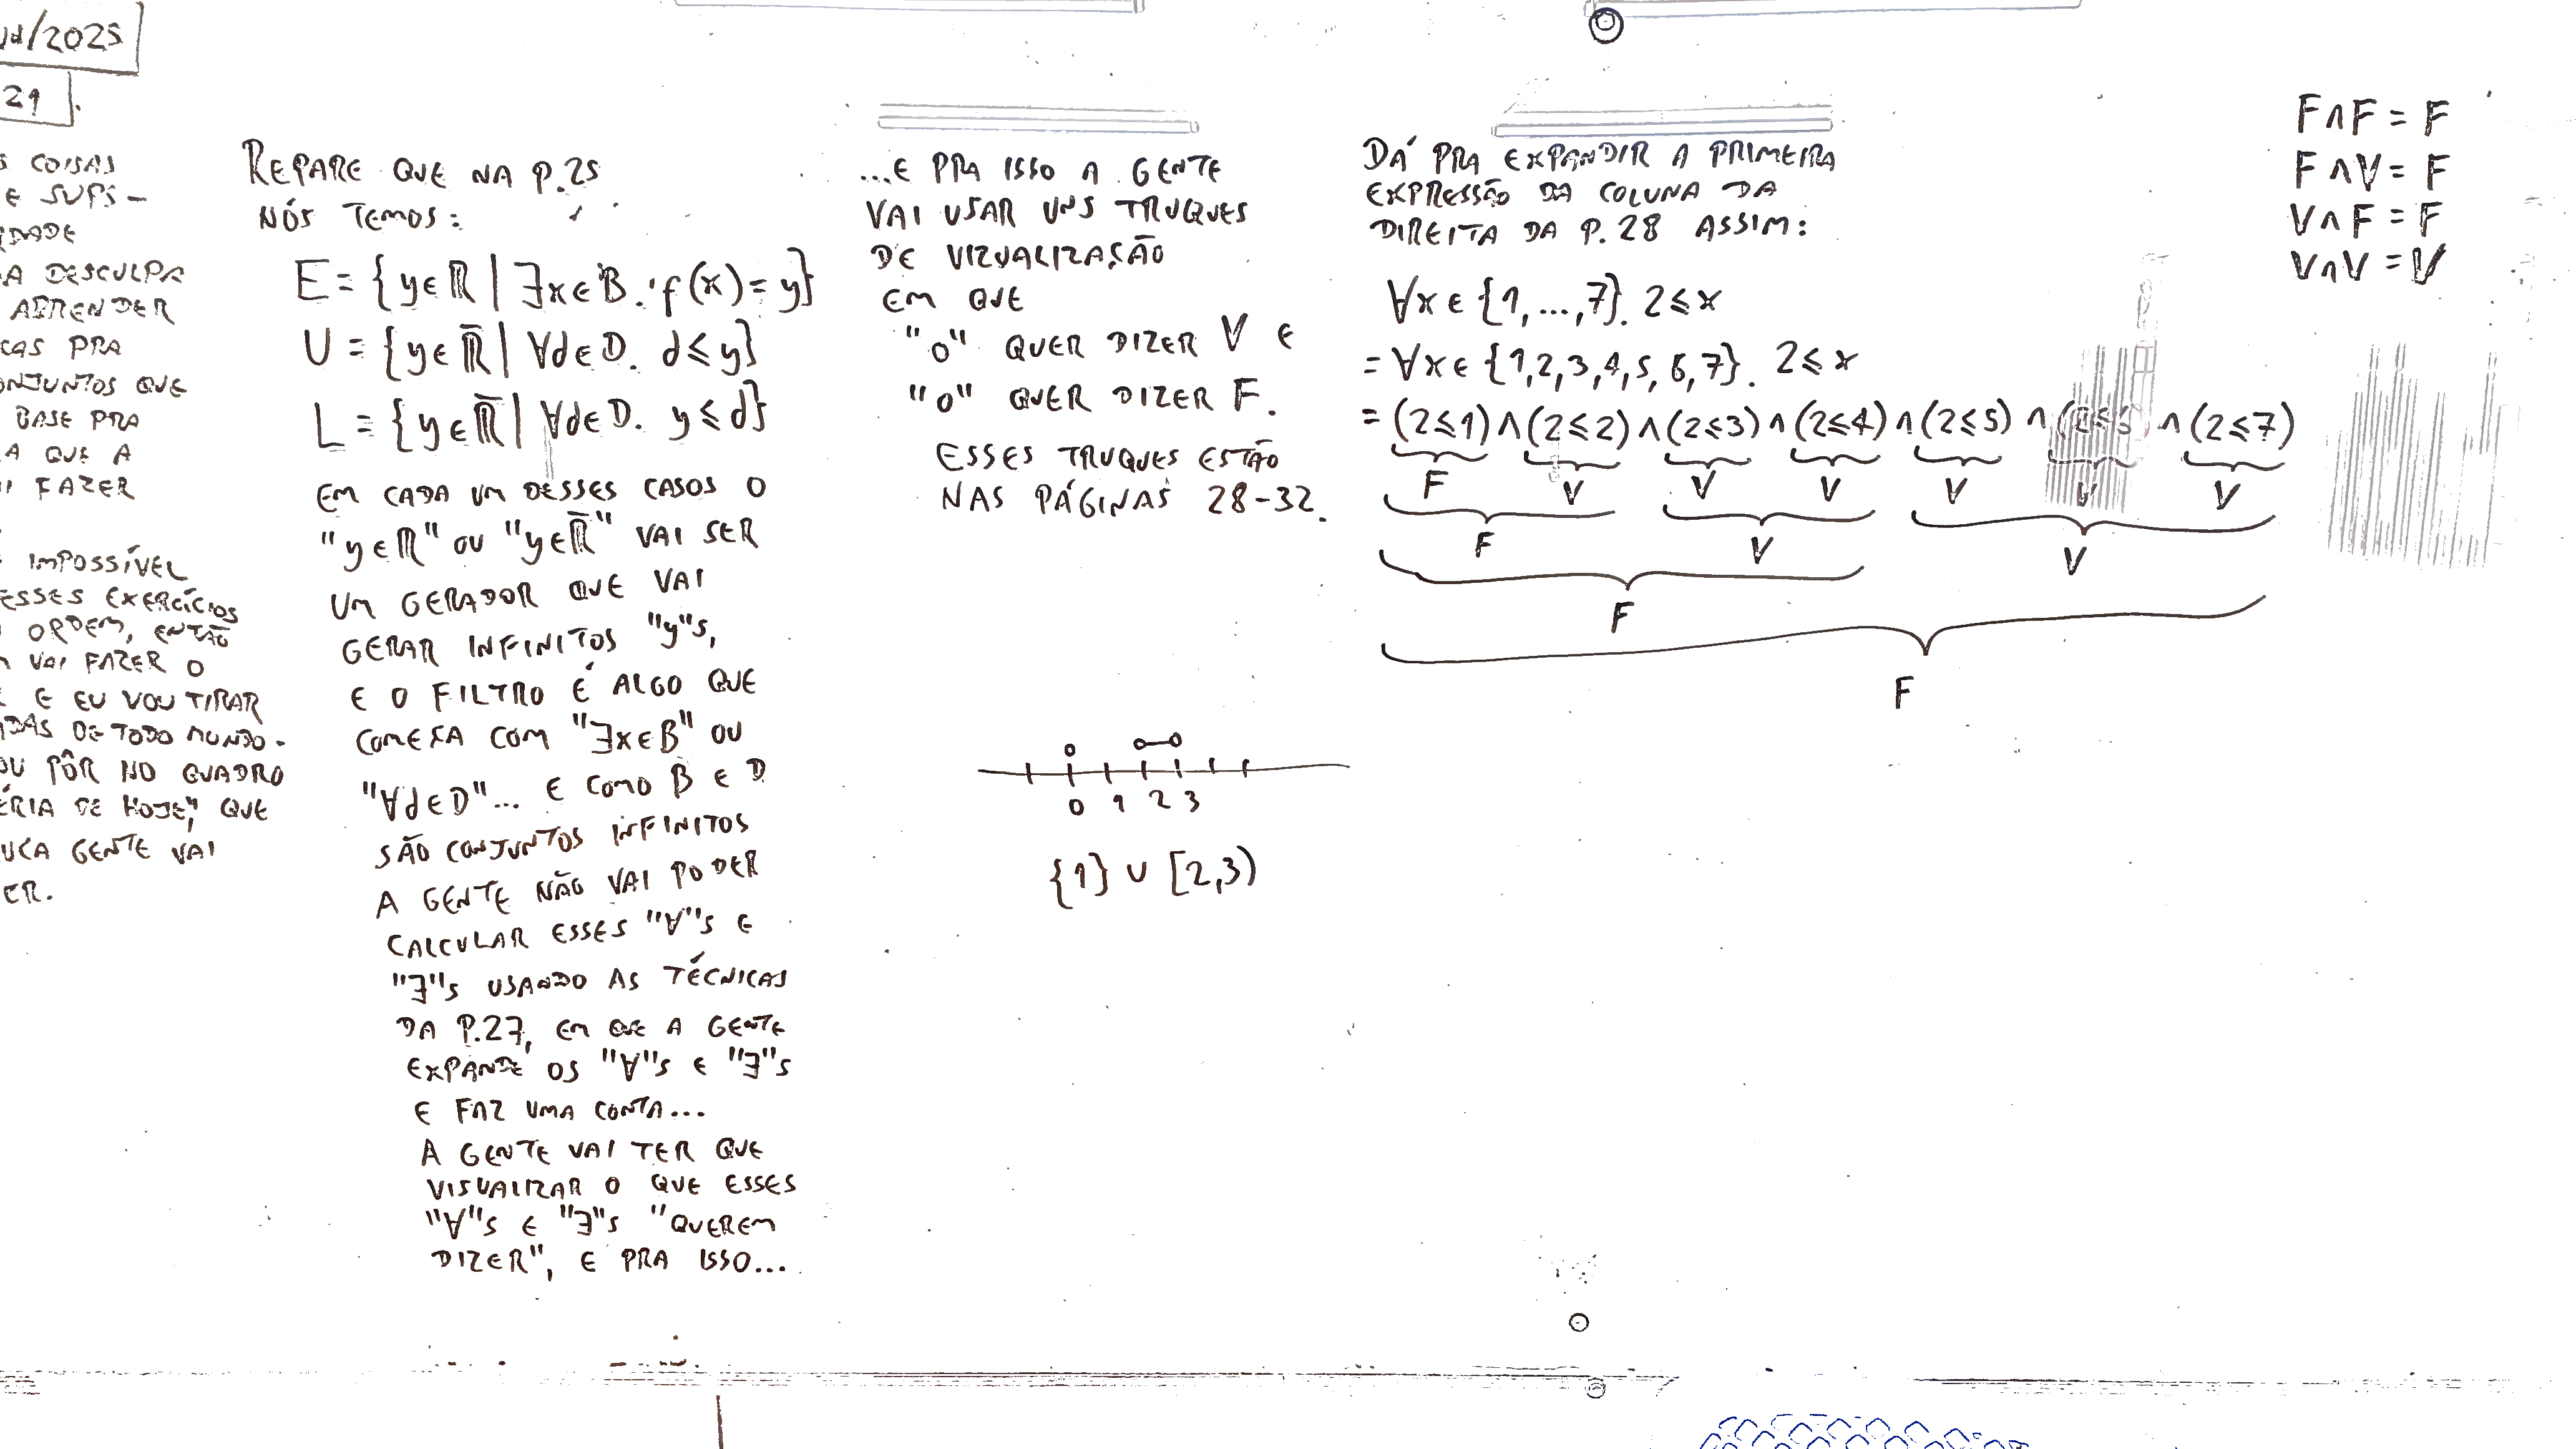 /2025
21
COISAS
E SUPS-
DADE
A DESCULPA
APRENDER
CAS PRA
ONJUNTOS QUE
BASE PRA
A QUE A
FAZER
IMPOSSÍVEL
ESSES EXERCÍCIOS
ORDEM, ENTÃO
VAI FAZER O
E EU VOU TIRAR
DAS DE TODO MUNDO.
OU PÔR NO QUADRO
ÉRIA DE HOJE", QUE
UCA GENTE VAI
ER.
REPARE QUE NA P.25
NÓS TEMOS:
E = {y∈ℝ | ∃x∈B. f(x)=y}
U = {y∈ℝ̄ | ∀d∈D. d≤y}
L = {y∈ℝ̄ | ∀d∈D. y≤d}
EM CADA UM DESSES CASOS O
"y∈ℝ" OU "y∈ℝ̄" VAI SER
UM GERADOR QUE VAI
GERAR INFINITOS "y"S,
E O FILTRO É ALGO QUE
COMEÇA COM "∃x∈B" OU
"∀d∈D"... E COMO B E D
SÃO CONJUNTOS INFINITOS
A GENTE NÃO VAI PODER
CALCULAR ESSES "∀"S E
"∃"S USANDO AS TÉCNICAS
DA P.27, EM QUE A GENTE
EXPANDE OS "∀"S E "∃"S
E FAZ UMA CONTA...
A GENTE VAI TER QUE
VISUALIZAR O QUE ESSES
"∀"S E "∃"S "QUEREM
DIZER", E PRA ISSO...
...E PRA ISSO A GENTE
VAI USAR UNS TRUQUES
DE VIZUALIZAÇÃO
EM QUE
"o" QUER DIZER V E
"o" QUER DIZER F.
ESSES TRUQUES ESTÃO
NAS PÁGINAS 28-32.
0 1 2 3
{1} ∪ [2,3)
DÁ PRA EXPANDIR A PRIMEIRA
EXPRESSÃO DA COLUNA DA
DIREITA DA P.28 ASSIM:
∀x∈{1,...,7}. 2≤x
= ∀x∈{1,2,3,4,5,6,7}. 2≤x
= (2≤1)∧(2≤2)∧(2≤3)∧(2≤4)∧(2≤5)∧(2≤6)∧(2≤7)
F V V V V V V
F V V
F
F
F∧F = F
F∧V = F
V∧F = F
V∧V = V